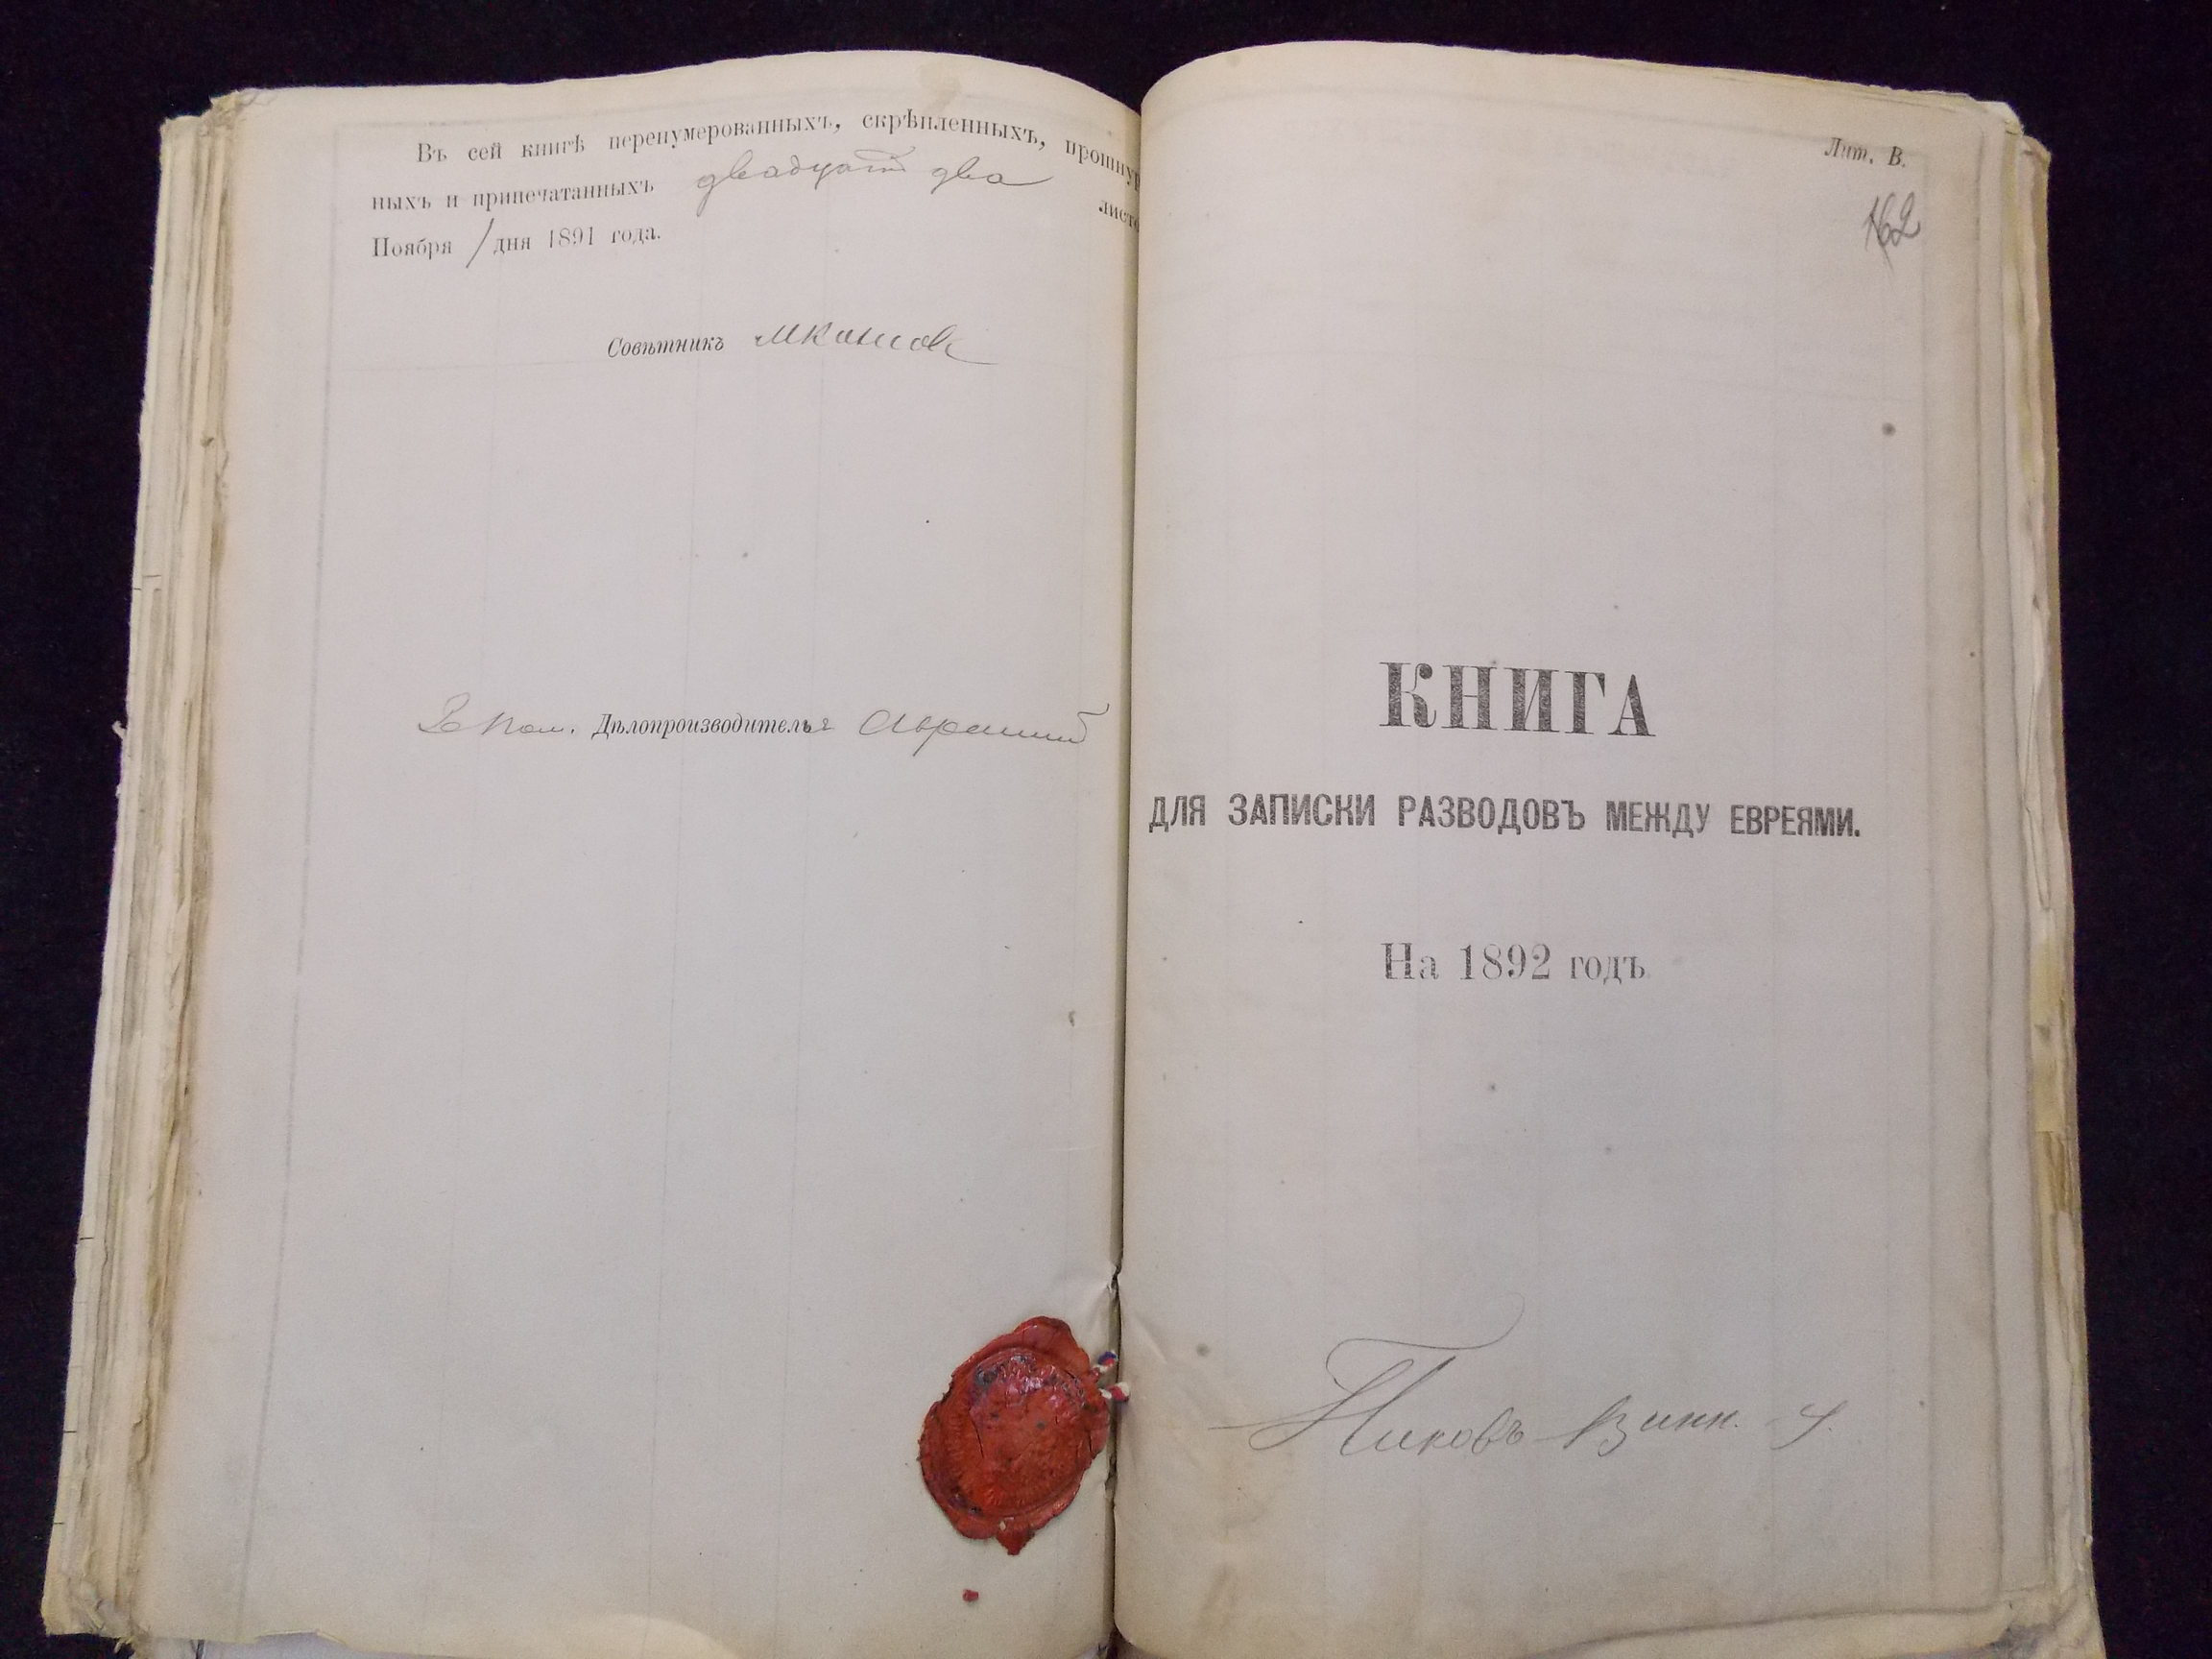 Въ сей книгѣ перенумерованныхъ, скрѣпленныхъ, прошнур
ныхъ и припечатанныхъ двадцать два листо
Ноября 1 дня 1891 года.
Совѣтникъ
За Пом. Дѣлопроизводителья
Лит. В.
162
КНИГА
ДЛЯ ЗАПИСКИ РАЗВОДОВЪ МЕЖДУ ЕВРЕЯМИ.
На 1892 годъ
Пиковъ Винн. у.